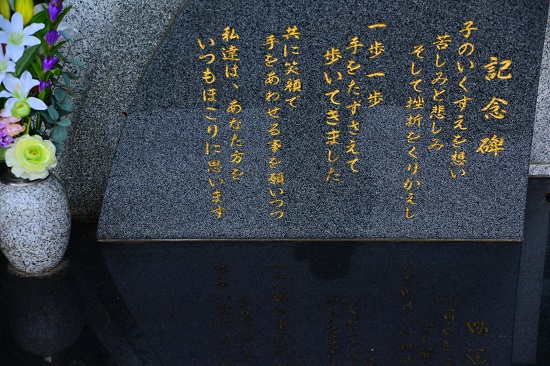 記念碑
子のいくすえを想い
苦しみと悲しみ
そして挫折をくりかえし
一歩一歩
手をたずさえて
歩いてきました
共に笑顔で
手をあわせる事を願いつつ
私達は、あなた方を
いつもほこりに思います